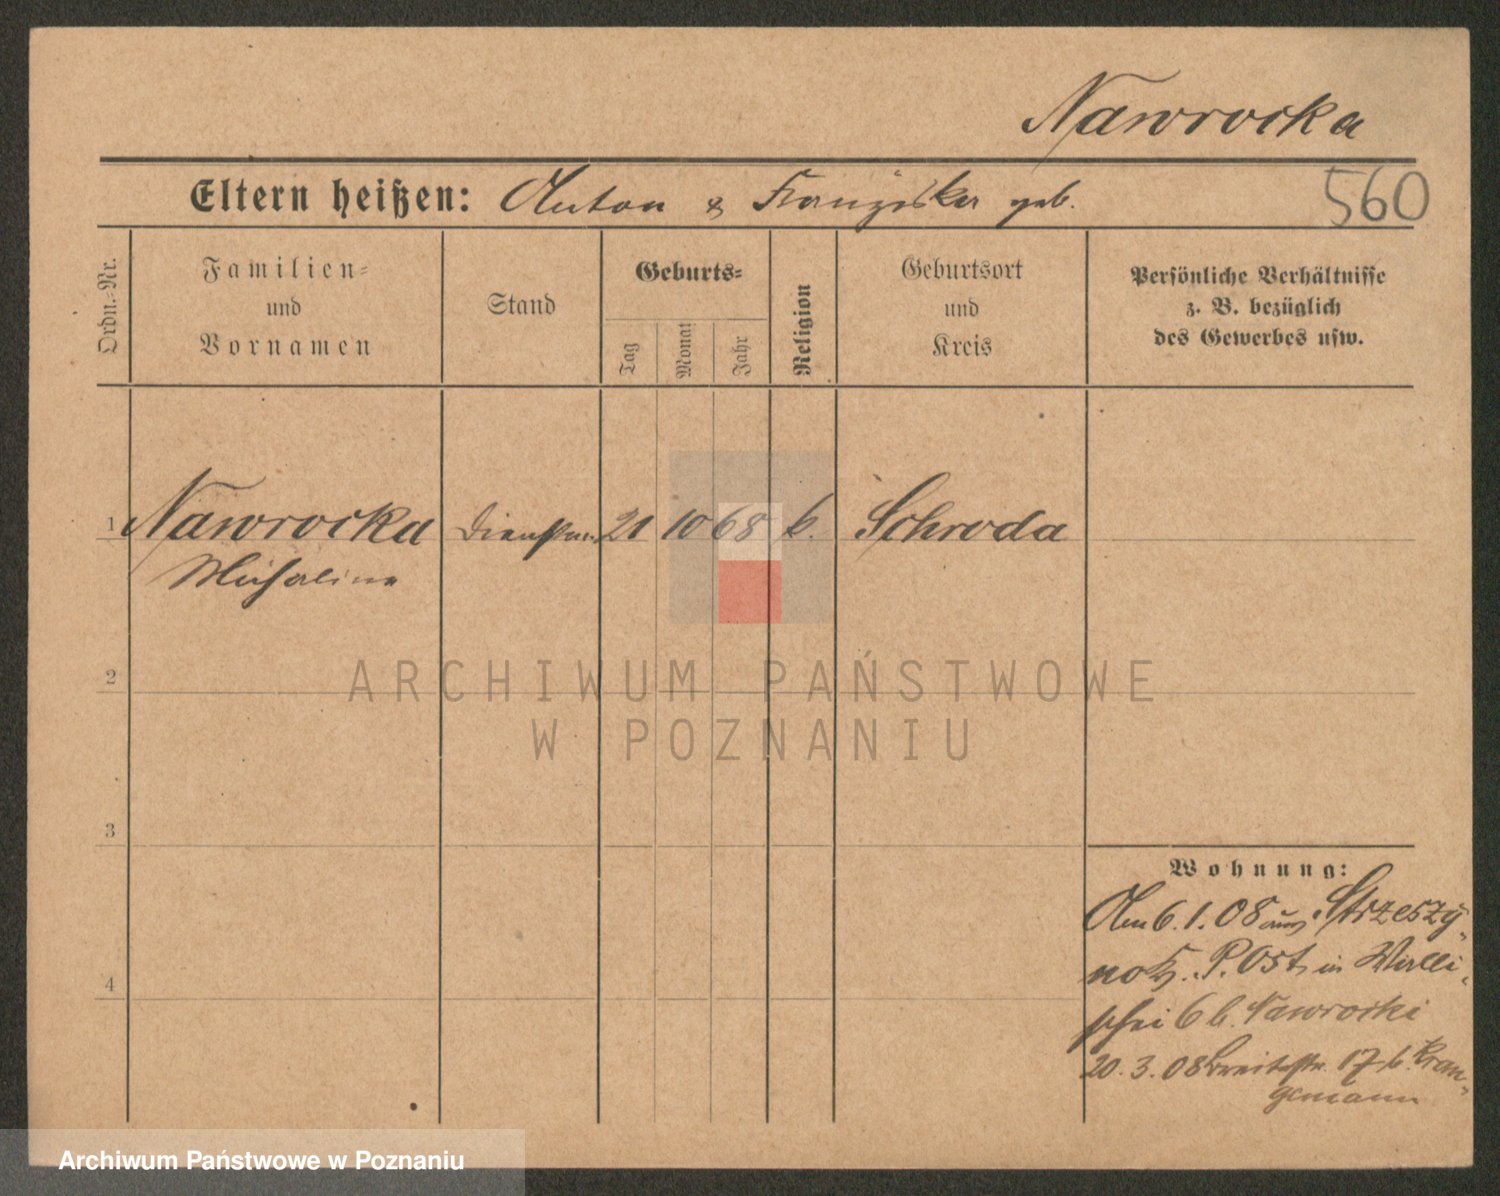 Nawrocka
Eltern heißen: Anton & Franziska geb.
560
Ordn.-Nr.
Familien-
und
Vornamen
Stand
Geburts-
Tag
Monat
Jahr
Religion
Geburtsort
und
Kreis
Persönliche Verhältnisse
z. B. bezüglich
des Gewerbes usw.
1 Nawrocka 21 10 68 k. Schroda
Michalina
ARCHIWUM PAŃSTWOWE
W POZNANIU
2
3
4
Wohnung:
Am 6. 1. 08 aus Strzeszy-
P. Ost, in Walli-
schei 6 b. Nawrocki
20. 3. 08 Breitestr. 17 b. Kran-
gemann
Archiwum Państwowe w Poznaniu